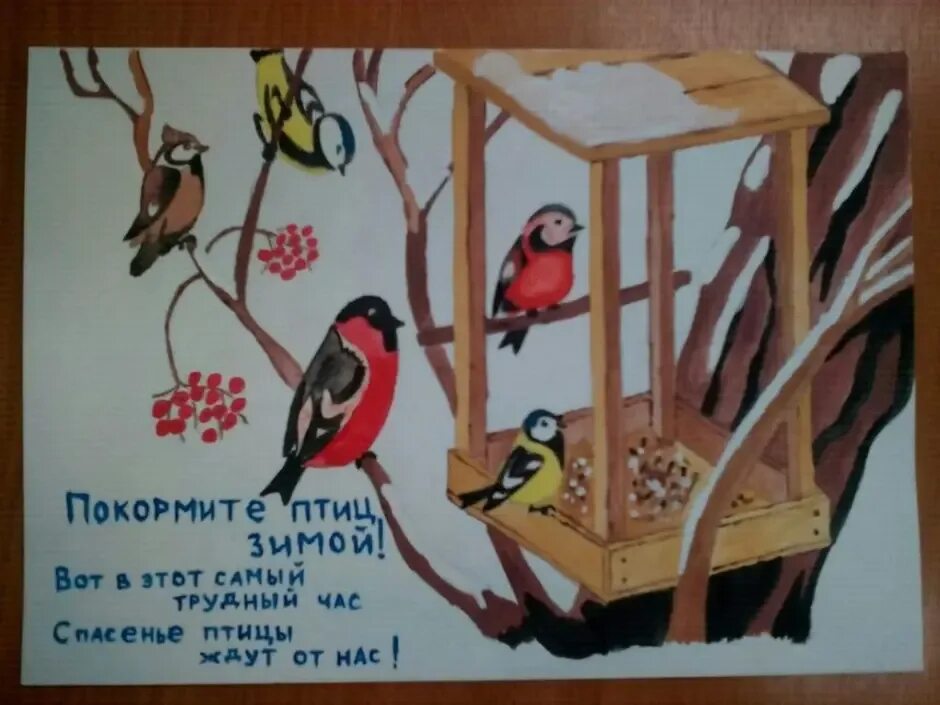 Покормите птиц
зимой!
Вот в этот самый
трудный час
Спасенье птицы
ждут от нас!